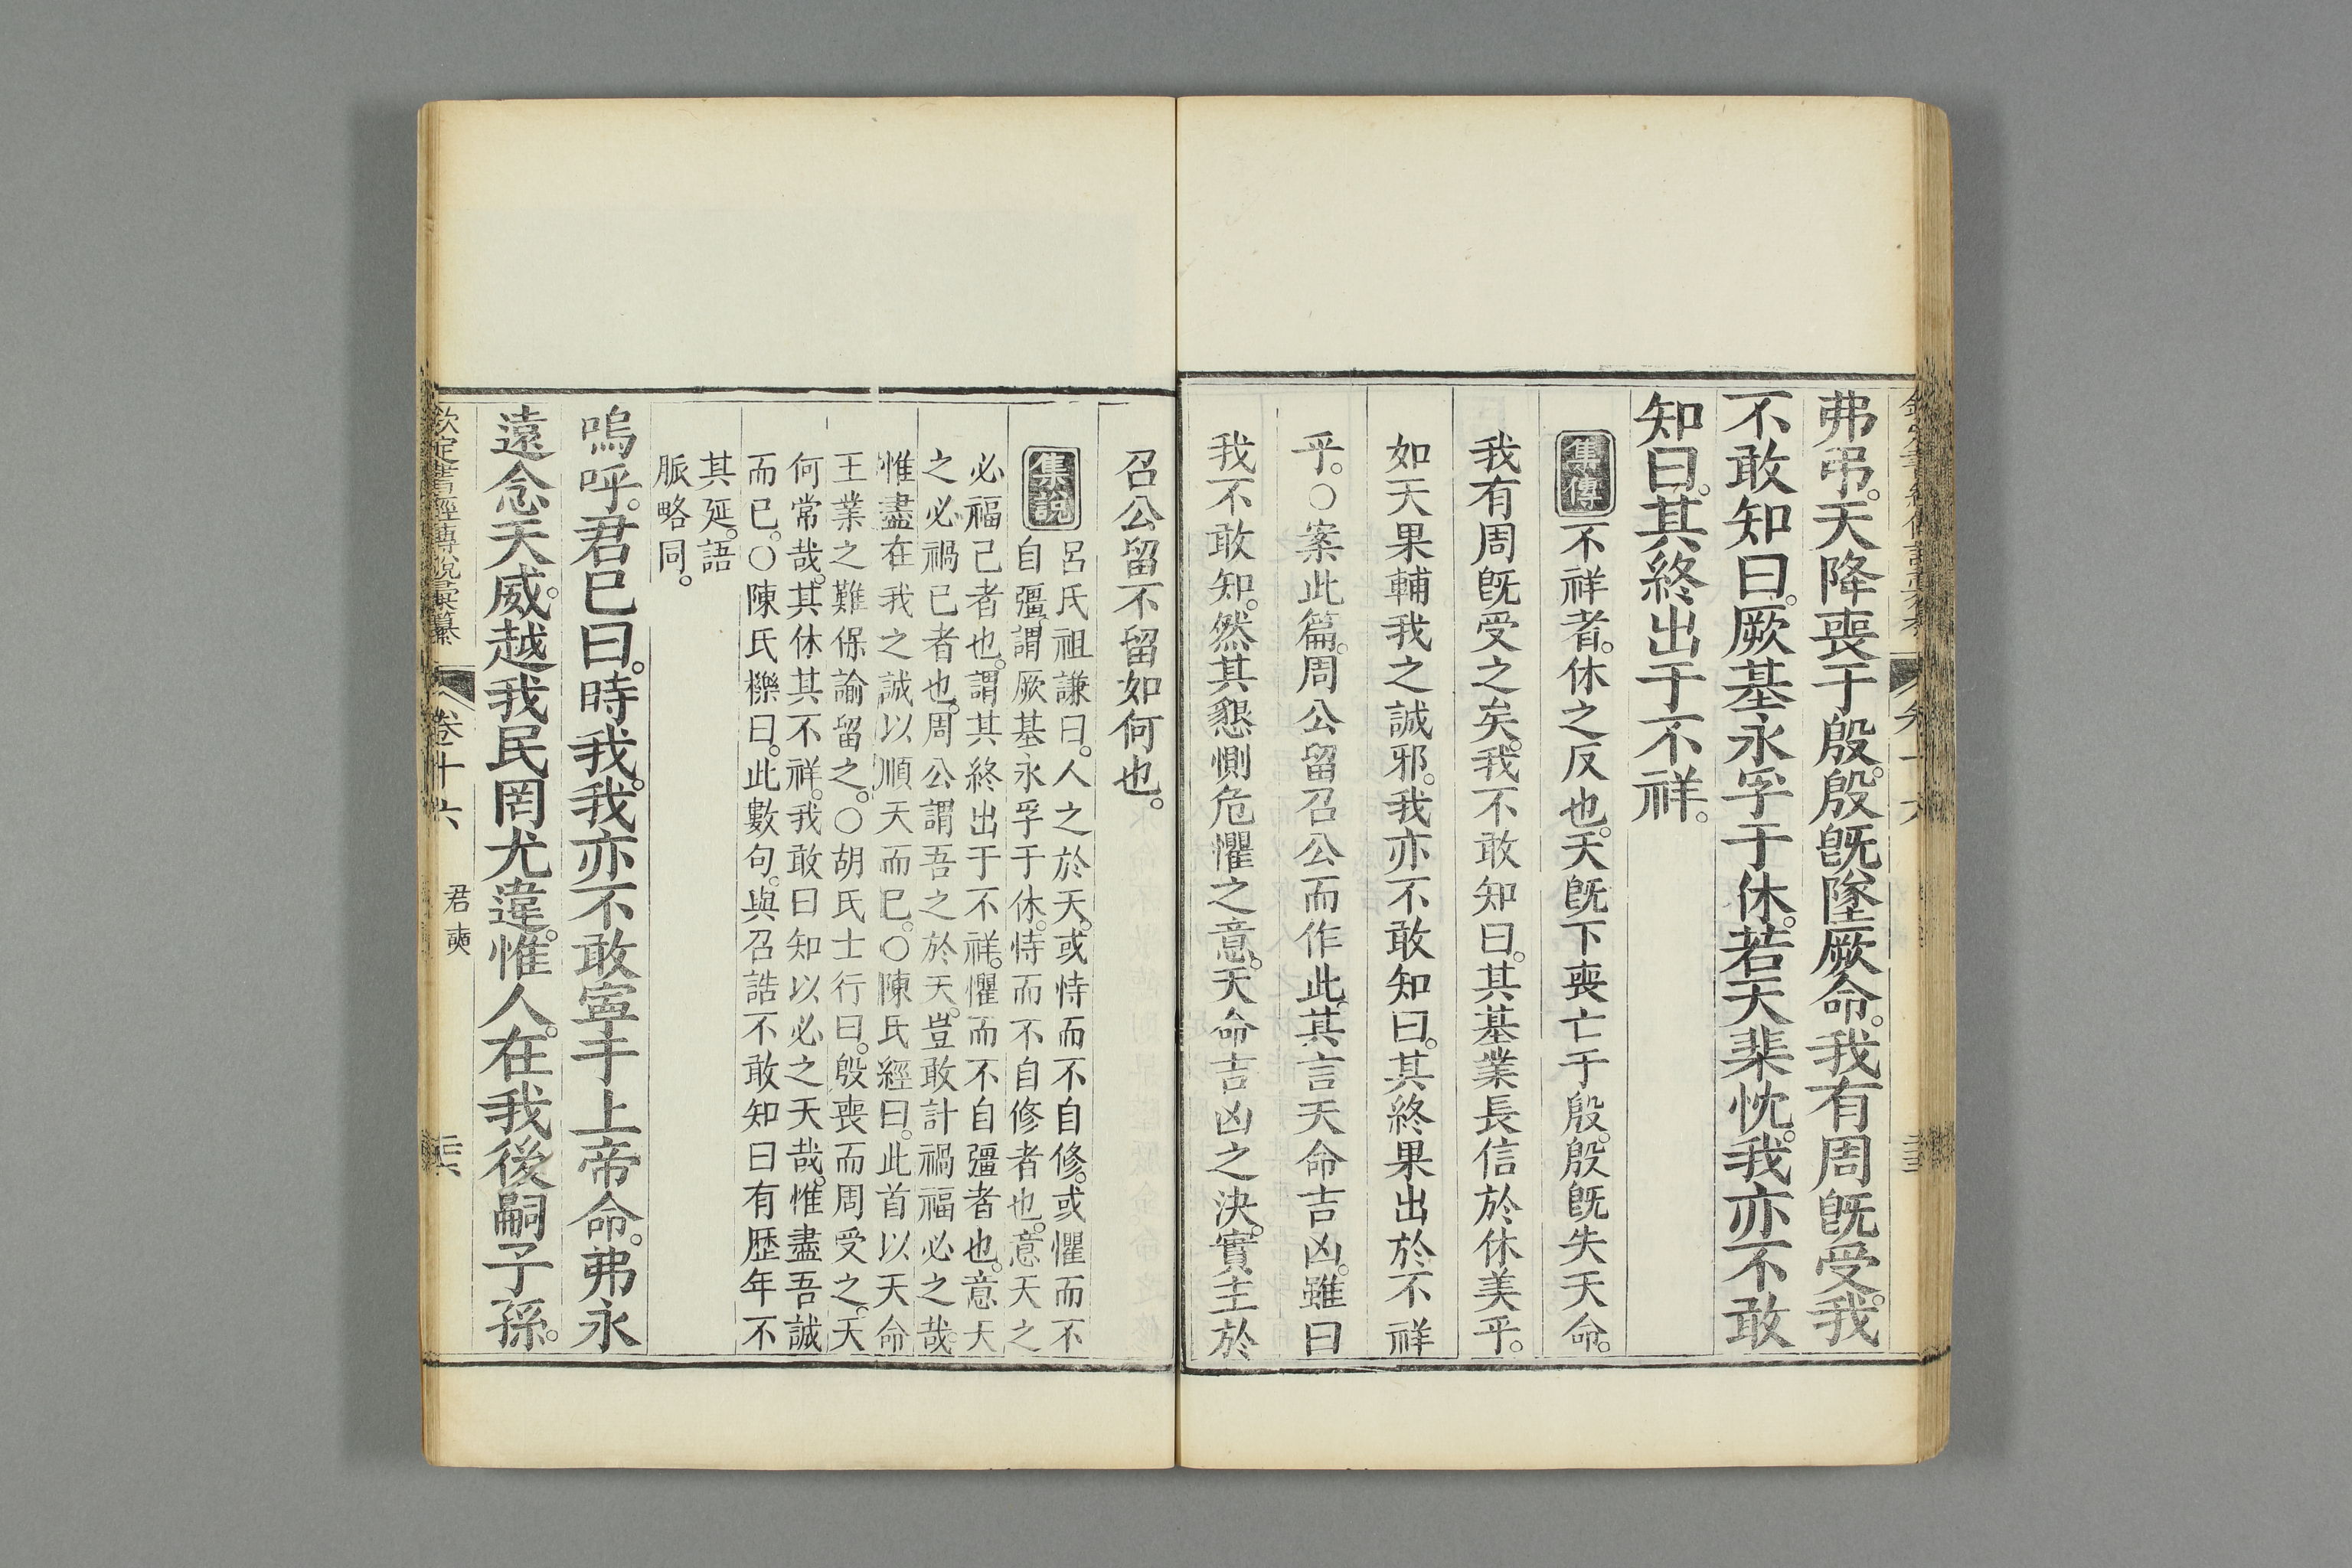 弗弔。天降喪于殷。殷旣墜厥命。我有周旣受。我
不敢知曰。厥基永孚于休。若天棐忱。我亦不敢
知曰。其終出于不祥。
集傳 不祥者。休之反也。天旣下喪亡于殷。殷旣失天命。
我有周旣受之矣。我不敢知曰。其基業長信於休美乎。
如天果輔我之誠邪。我亦不敢知曰。其終果出於不祥
乎。○案此篇。周公留召公而作此。其言天命吉凶。雖曰
我不敢知。然其懇惻危懼之意。天命吉凶之決。實主於
召公留不留如何也。
集說 呂氏祖謙曰。人之於天。或恃而不自修。或懼而不
自彊。謂厥基永孚于休。恃而不自修者也。意天之
必福己者也。謂其終出于不祥。懼而不自彊者也。意天
之必禍己者也。周公謂吾之於天。豈敢計禍福必之哉。
惟盡在我之誠以順天而已。○陳氏經曰。此首以天命
王業之難保諭留之。○胡氏士行曰。殷喪而周受之。天
何常哉。其休其不祥。我敢曰知以必之天哉。惟盡吾誠
而已。○陳氏櫟曰。此數句。與召誥不敢知曰有歷年不
其延。語
脈略同。
嗚呼。君已曰。時我。我亦不敢寧于上帝命。弗永
遠念天威。越我民罔尤違。惟人。在我後嗣子孫。
欽定書經傳說彙纂 卷十六 君奭